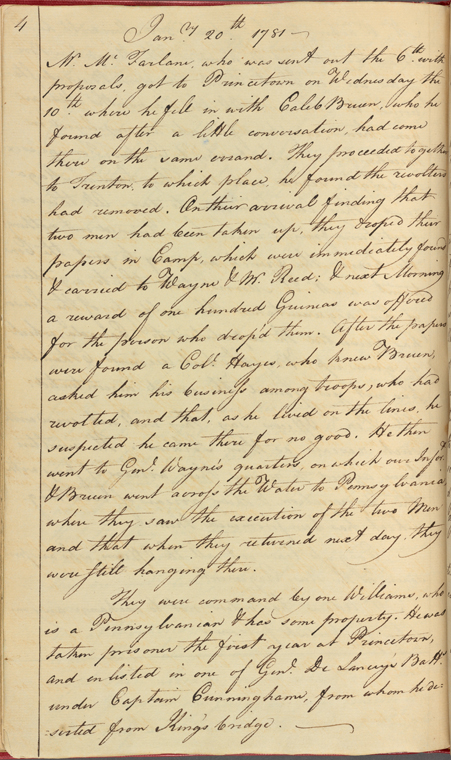 4
Jan.ry 20.th 1781 —
Mr. Mc. Farlane, who was sent out the 6.th with
proposals, got to Princetown on Wednesday the
10.th where he fell in with Caleb Bruen, who he
found after a little conversation, had come
there on the same errand. They proceeded together
to Trenton, to which place, he found the revolters
had removed. On their arrival finding that
two men had been taken up, they droped their
papers in Camp, which were immediatily found
& carried to Wayne & Mr. Reed; & next Morning
a reward of one hundred Guineas was offered
for the person who drop'd them. After the papers
were found a Col.o Hayes, who knew Bruen,
asked him his business among troops, who had
revolted, and that, as he lived on the lines, he
suspected he came there for no good. He then
went to Gen.l Wayne's quarters, on which our Infor.t
& Bruen went across the Water to Pennsylvania
where they saw the execution of the two Men
and that when they returned next day, they
were still hanging there.
They were command by one Williams, who
is a Pennsylvanian & has some property. He was
taken prisoner the first year at Princetown,
and enlisted in one of Gen.l De Lancey's Batt.s
under Captain Cunninghame, from whom he de=
=serted from King's bridge. —